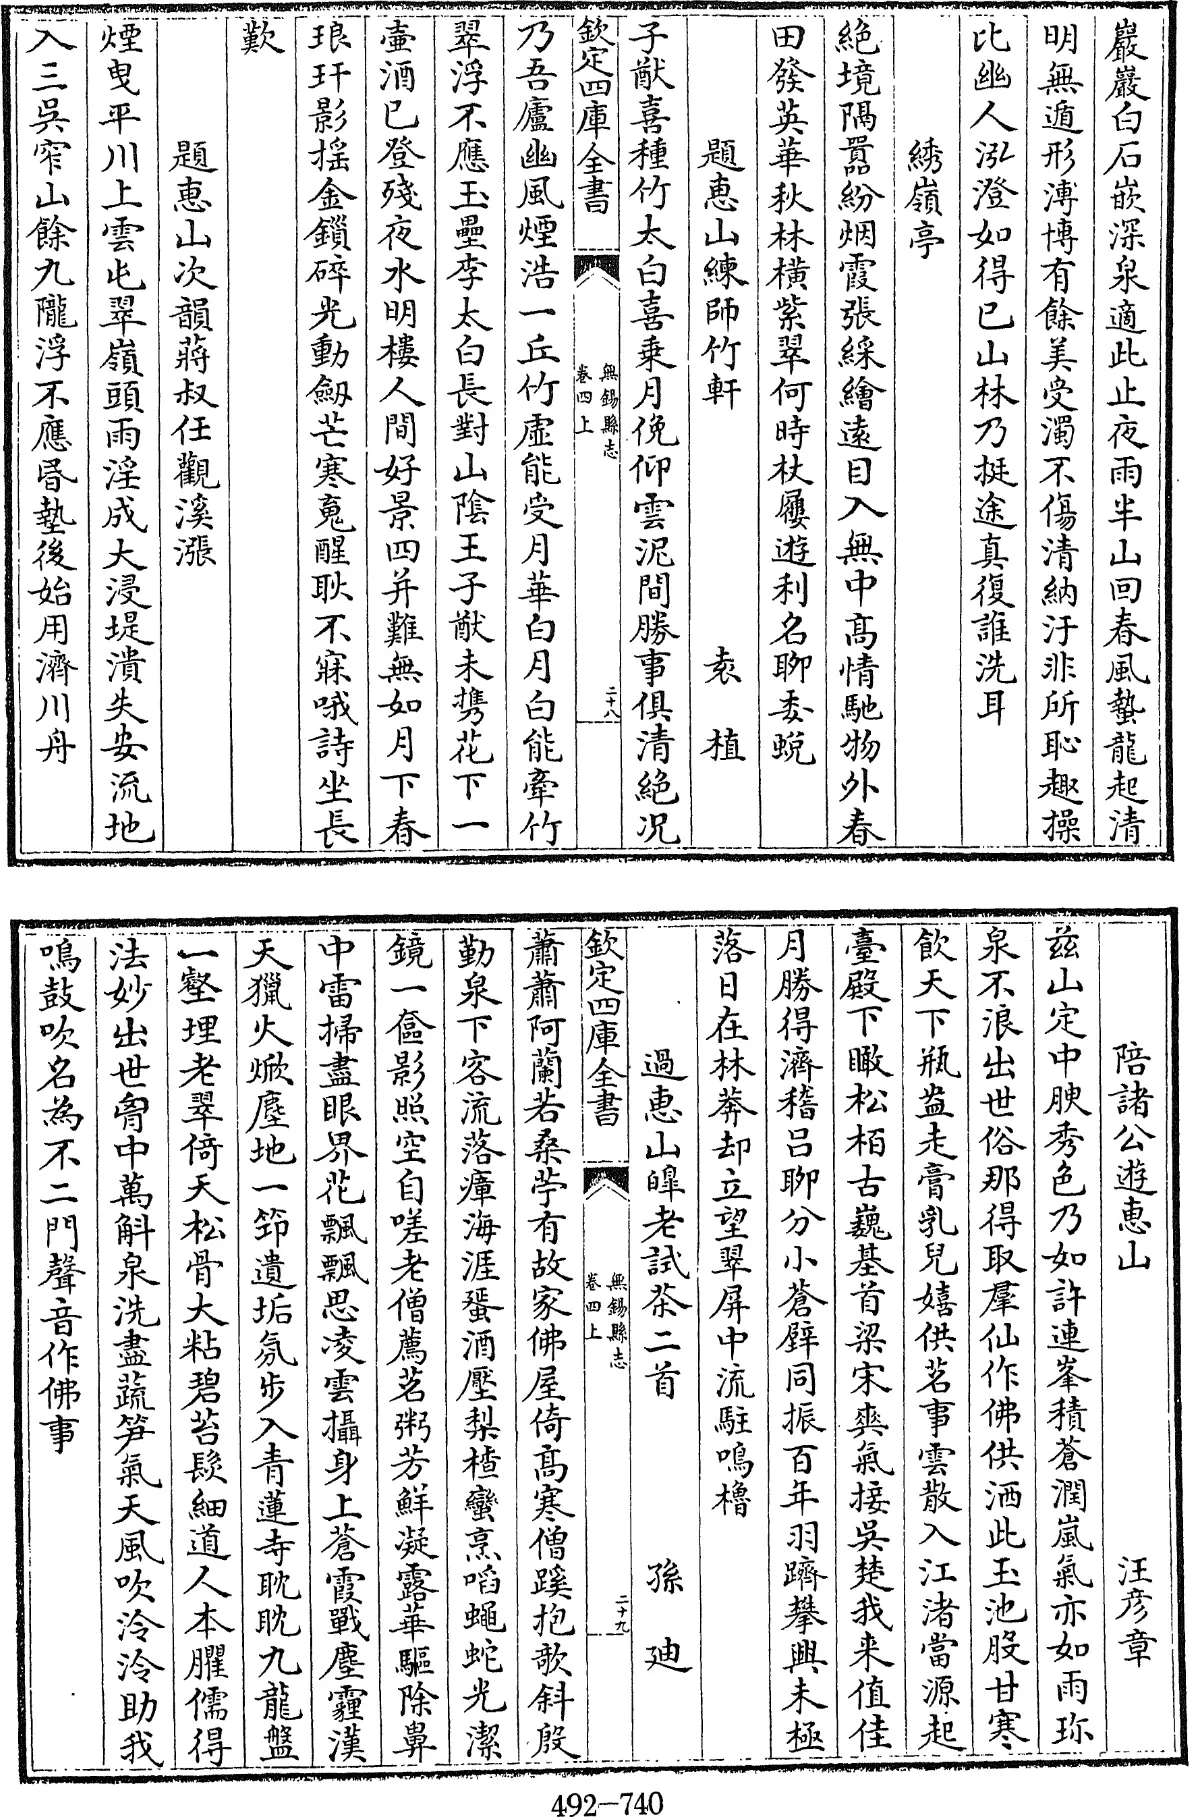 巖巖白石嵌深泉適此止夜雨半山回春風蟄龍起清
明無遁形溥博有餘美受濁不傷清納汙非所恥趣操
比幽人泓澄如得已山林乃挺途真復誰洗耳
綉嶺亭
絕境隅囂紛烟霞張綵繪遠目入無中高情馳物外春
田發英華秋林橫紫翠何時杖屨遊利名聊委蛻
題惠山練師竹軒 袁植
子猷喜種竹太白喜乗月俛仰雲泥間勝事俱清絕况
欽定四庫全書 無錫縣志 卷四上 二十八
乃吾廬幽風煙浩一丘竹虛能受月華白月白能牽竹
翠浮不應玉罍李太白長對山陰王子猷未携花下一
壷酒已登殘夜水明樓人間好景四并難無如月下春
琅玕影揺金鎖碎光動劔芒寒鬼醒耿不寐哦詩坐長
歎
題惠山次韻蔣叔任觀溪漲
煙曳平川上雲屯翠嶺頭雨淫成大浸堤潰失安流地
入三吳窄山餘九隴浮不應昬墊後始用濟川舟
陪諸公遊惠山 汪彦章
兹山定中腴秀色乃如許連峯積蒼潤嵐氣亦如雨珎
泉不浪出世俗那得取羣仙作佛供洒此玉池股甘寒
飲天下瓶盎走膏乳兒嬉供茗事雲散入江渚當源起
臺殿下瞰松栢古巍基首梁宋爽氣接吳楚我来值佳
月勝得濟稽吕聊分小蒼璧同振百年羽躋攀興未極
落日在林莽却立望翠屏中流駐鳴櫓
過惠山皥老試茶二首 孫廸
欽定四庫全書 無錫縣志 卷四上 二十九
蕭蕭阿蘭若桑苧有故家佛屋倚高寒僧蹊抱欹斜殷
勤泉下客流落瘴海涯蜑酒壓梨楂蠻烹啗蠅蛇光潔
鏡一奩影照空自嗟老僧薦茗粥芳鮮凝露華驅除鼻
中雷掃盡眼界花飄飄思凌雲攝身上蒼霞戰塵霾漢
天獵火焮塵地一笻遺垢氛步入青蓮寺耽耽九龍盤
一壑埋老翠倚天松骨大粘碧苔髮細道人本臞儒得
法妙出世胷中萬斛泉洗盡蔬笋氣天風吹泠泠助我
鳴鼓吹名為不二門聲音作佛事
492-740